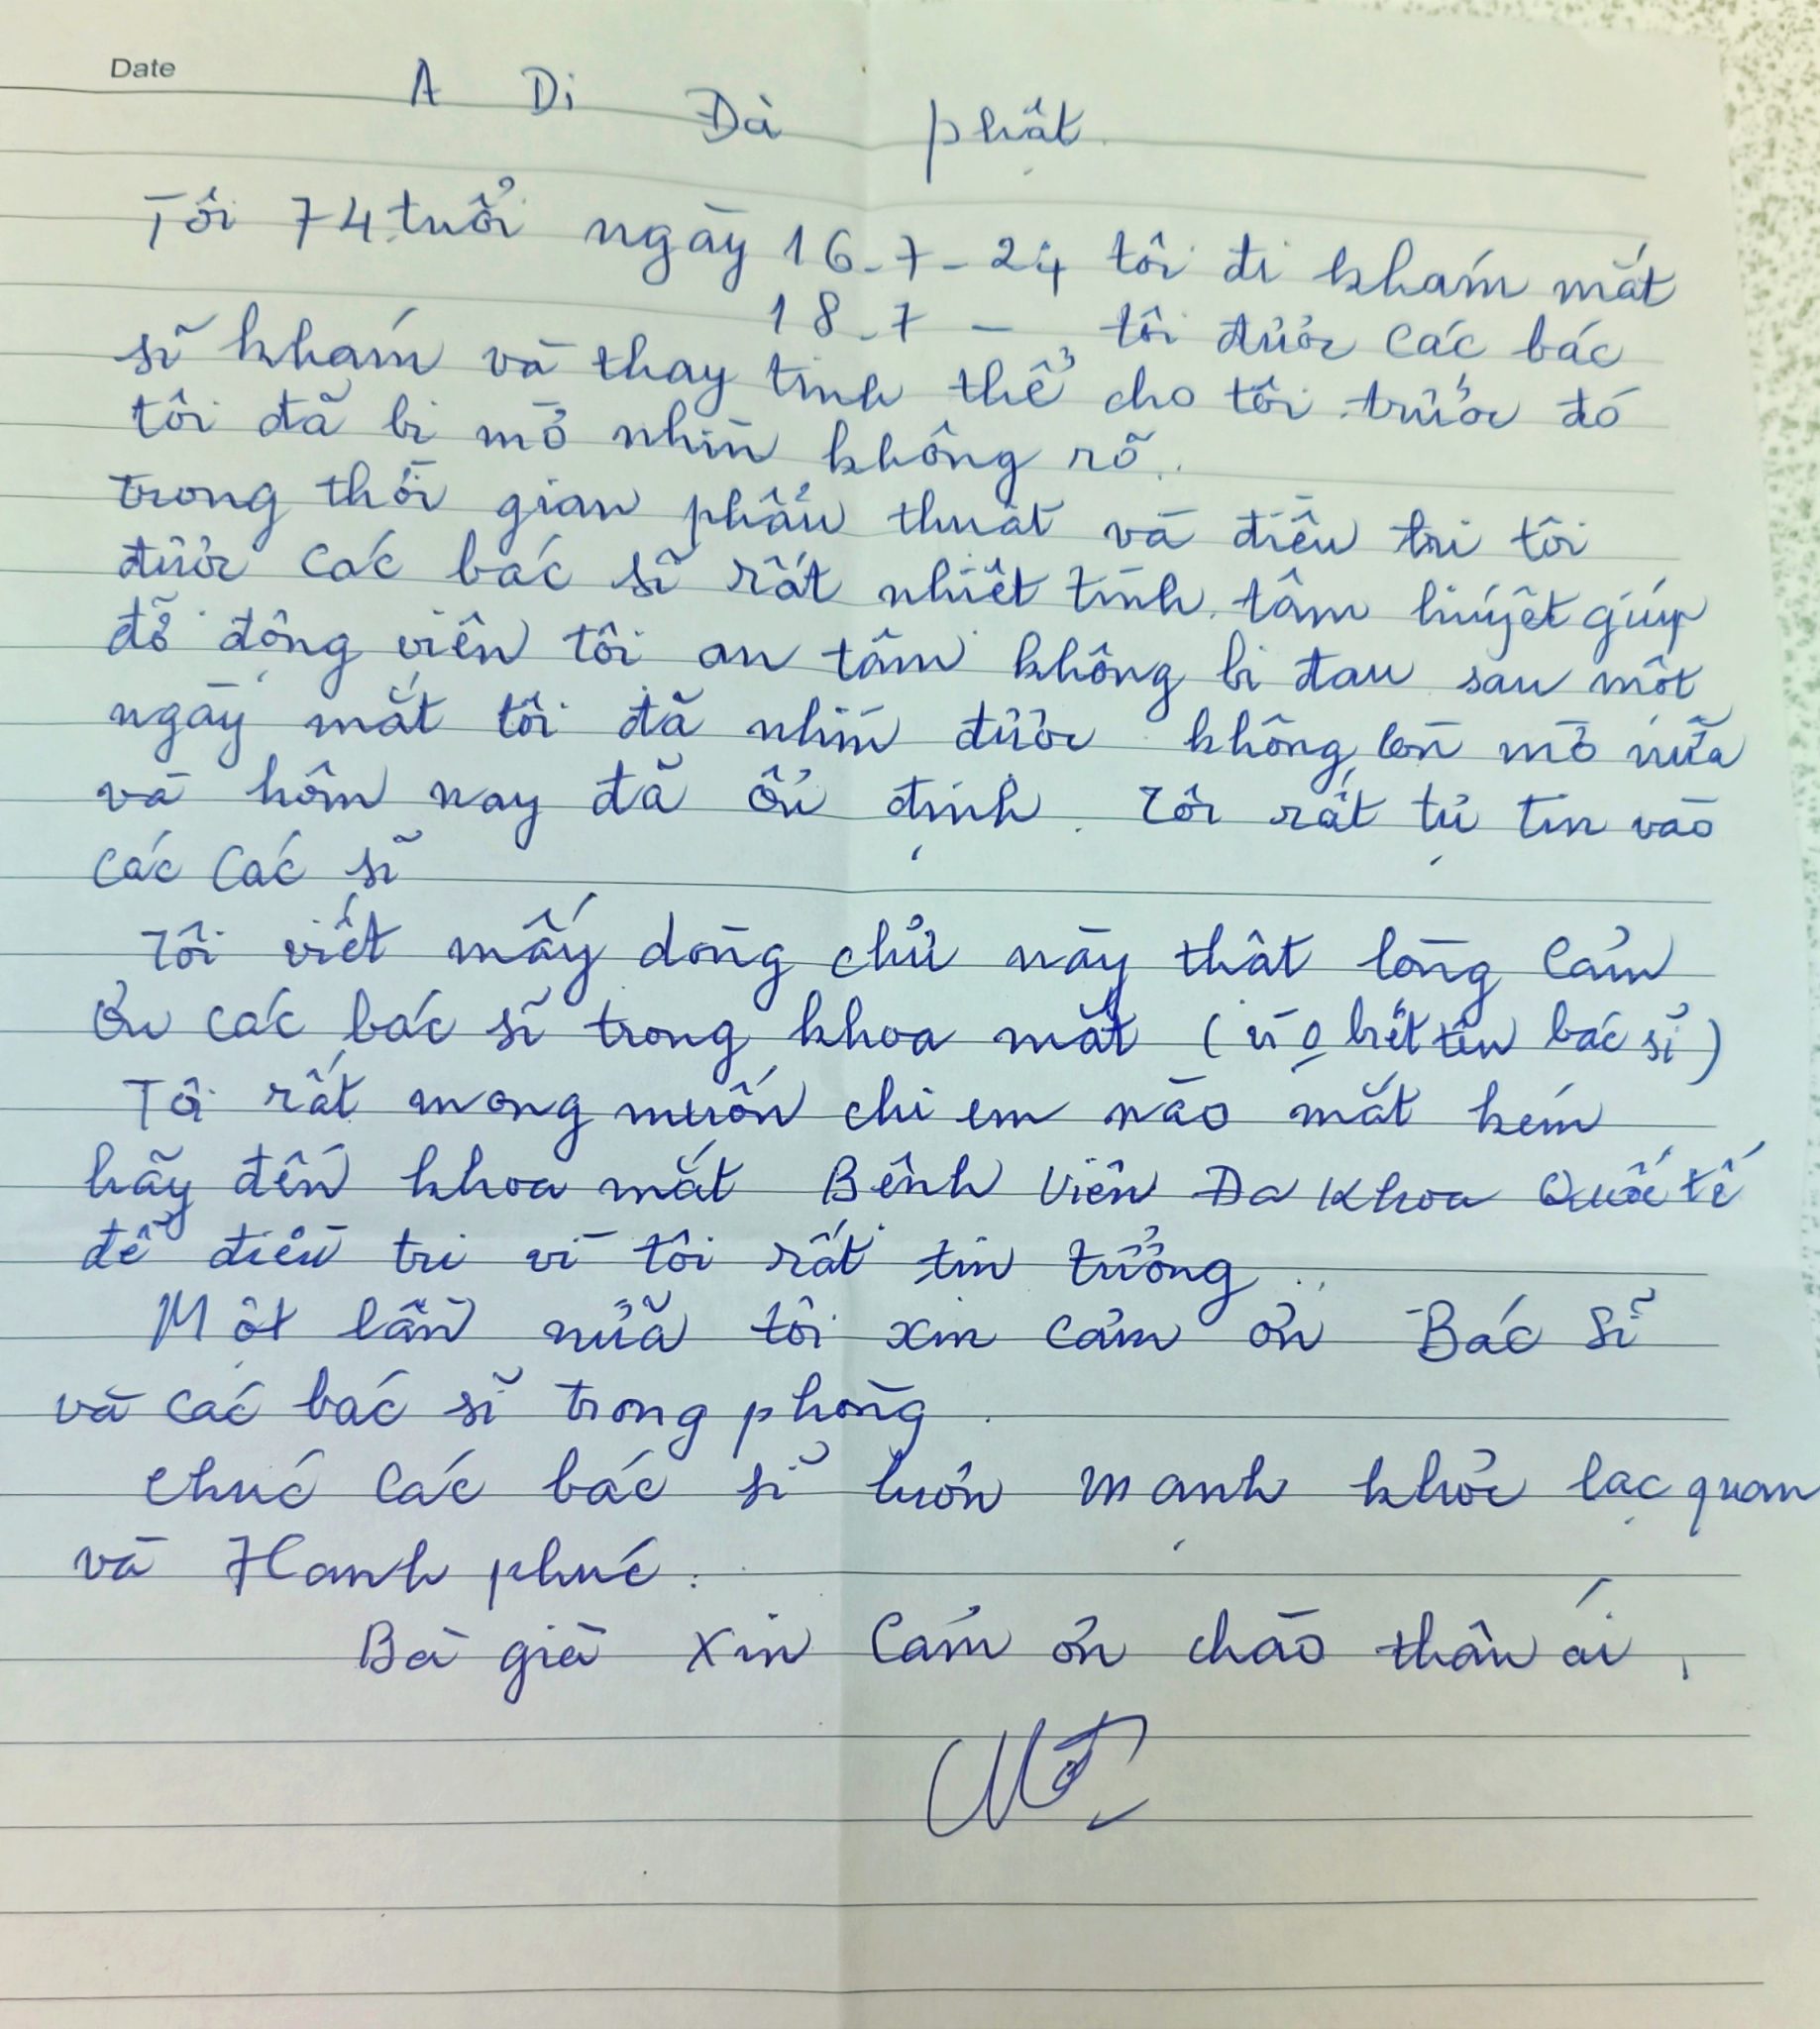 Date
A Di Đà phật
Tôi 74 tuổi ngày 16-7-24 tôi đi khám mắt
18-7 — tôi được các bác
sĩ khám và thay tinh thể cho tôi trước đó
tôi đã bị mờ nhìn không rõ.
trong thời gian phẩu thuật và điều trị tôi
được các bác sĩ rất nhiệt tình, tâm huyết giúp
đỡ động viên tôi an tâm không bị đau sau một
ngày mắt tôi đã nhìn được không còn mờ nữa
và hôm nay đã ổn định. Tôi rất tự tin vào
các các sĩ
Tôi viết mấy dòng chữ này thật lòng cảm
ơn các bác sĩ trong khoa mắt (vì o biết tên bác sĩ)
Tôi rất mong muốn chị em nào mắt kém
hãy đến khoa mắt Bệnh Viện Đa Khoa Quốc tế
để điều trị vì tôi rất tin tưởng
Một lần nữa tôi xin cảm ơn Bác Sĩ
và các bác sĩ trong phòng.
chúc các bác sĩ luôn mạnh khỏe lạc quan
và Hạnh phúc.
Bà già xin cảm ơn chào thân ái.